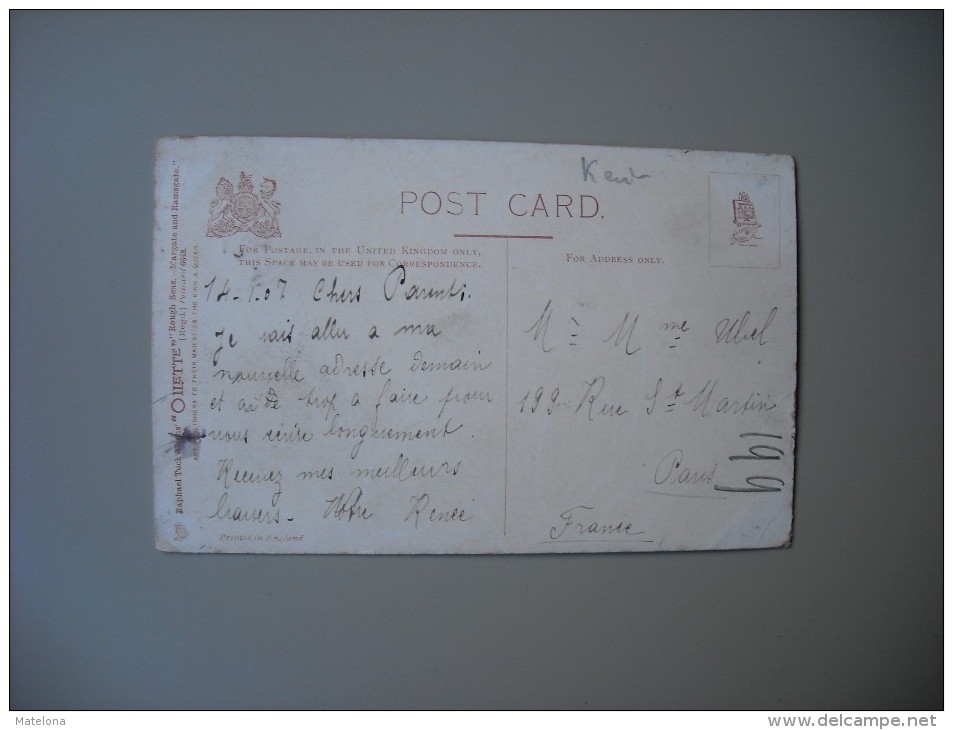 Kent
POST CARD.
FOR POSTAGE, IN THE UNITED KINGDOM ONLY,
THIS SPACE MAY BE USED FOR CORRESPONDENCE.
FOR ADDRESS ONLY.
14-1.07 Chers Parents.
Je vais aller a ma
nouvelle adresse demain
et ai trop a faire pour
vous écrire longuement.
Recevez mes meilleurs
baisers - Votre Renée
Mr & Mme Ubel
199 Rue St Martin
Paris
France
199
Printed in England
Raphael Tuck & Sons' "OILETTE" "Rough Seas. Margate and Ramsgate."
[Regd.] Postcard 6648.
ART PUBLISHERS TO THEIR MAJESTIES THE KING & QUEEN
Matelona
www.delcampe.net